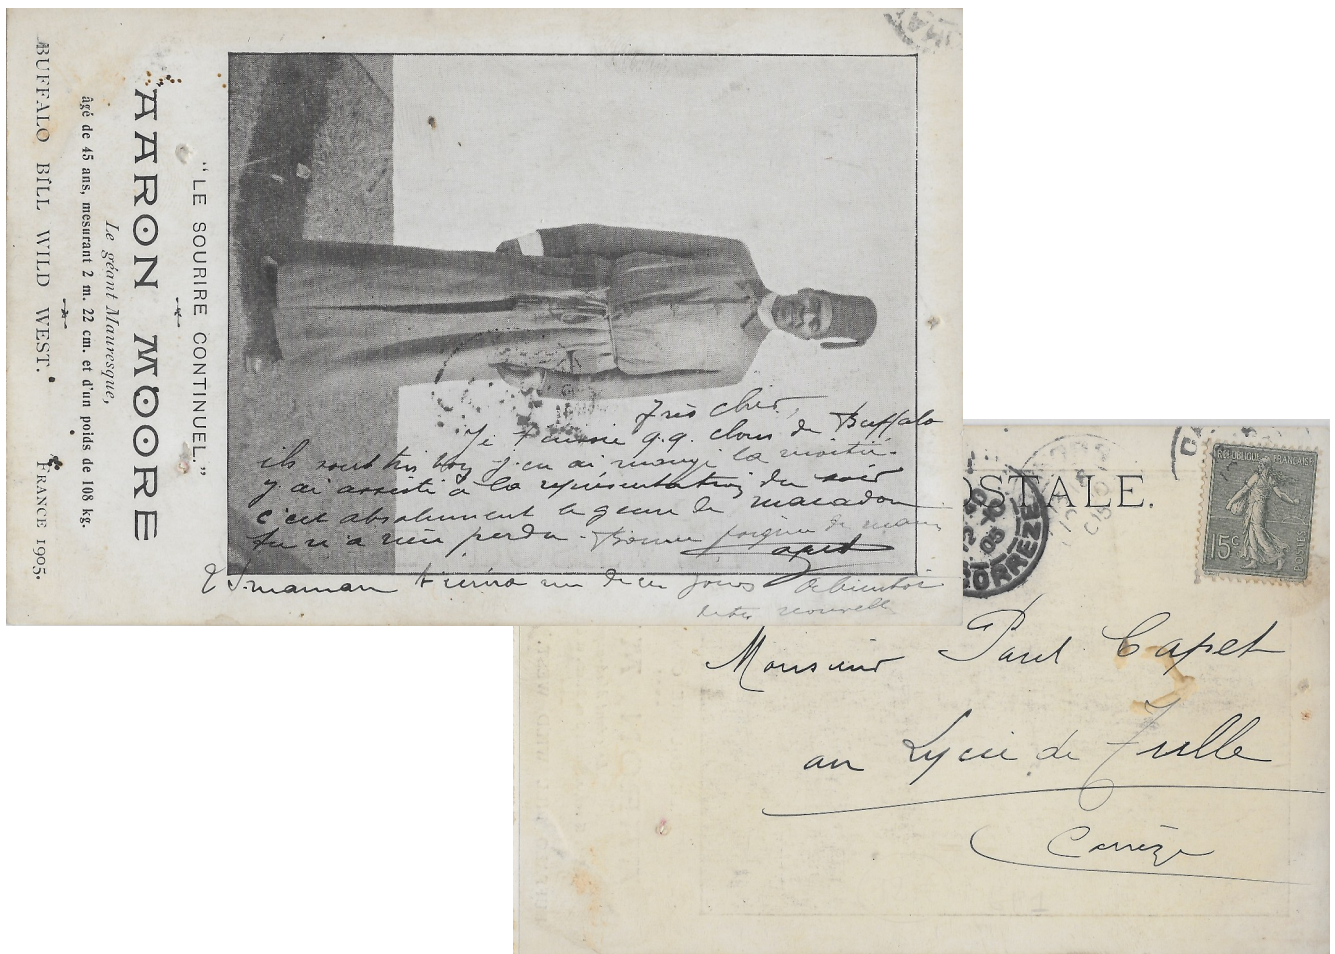 "LE SOURIRE CONTINUEL."
AARON MOORE
Le géant Mauresque,
âgé de 45 ans, mesurant 2 m. 22 cm. et d'un poids de 108 kg.
BUFFALO BILL WILD WEST. FRANCE 1905.
Très cher,
Je t'envoie q.q. clous de Buffalo
ils sont très bons j'en ai mangé la moitié.
J'ai assisté à la représentation du soir
c'est absolument le genre de macadon
tu n'a rien perdu. Bonne poignée de main
Capet
maman t'écrira un de ces jours A bientôt
de tes nouvelles
POSTALE.
CORRÈZE
REPUBLIQUE FRANÇAISE
15c
POSTES
Monsieur Paul Capet
au Lycée de Tulle
Corrèze